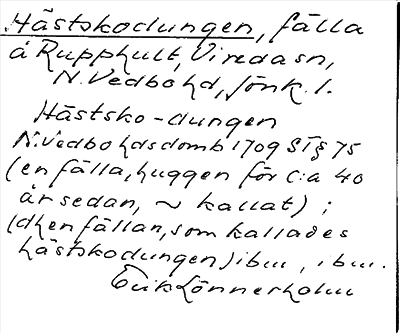 Hästskodungen, fälla
å Rupphult, Viredasn,
N. Vedbo hd, Jönk. l.
Hästsko-dungen
N. Vedbo hdsdomb 1709 ST § 75
(en fälla, huggen för c:a 40
år sedan, ~ kallat);
(d)en fällan, som kallades
hästskodungen) ibm, ibm.
Erik Lönnerholm